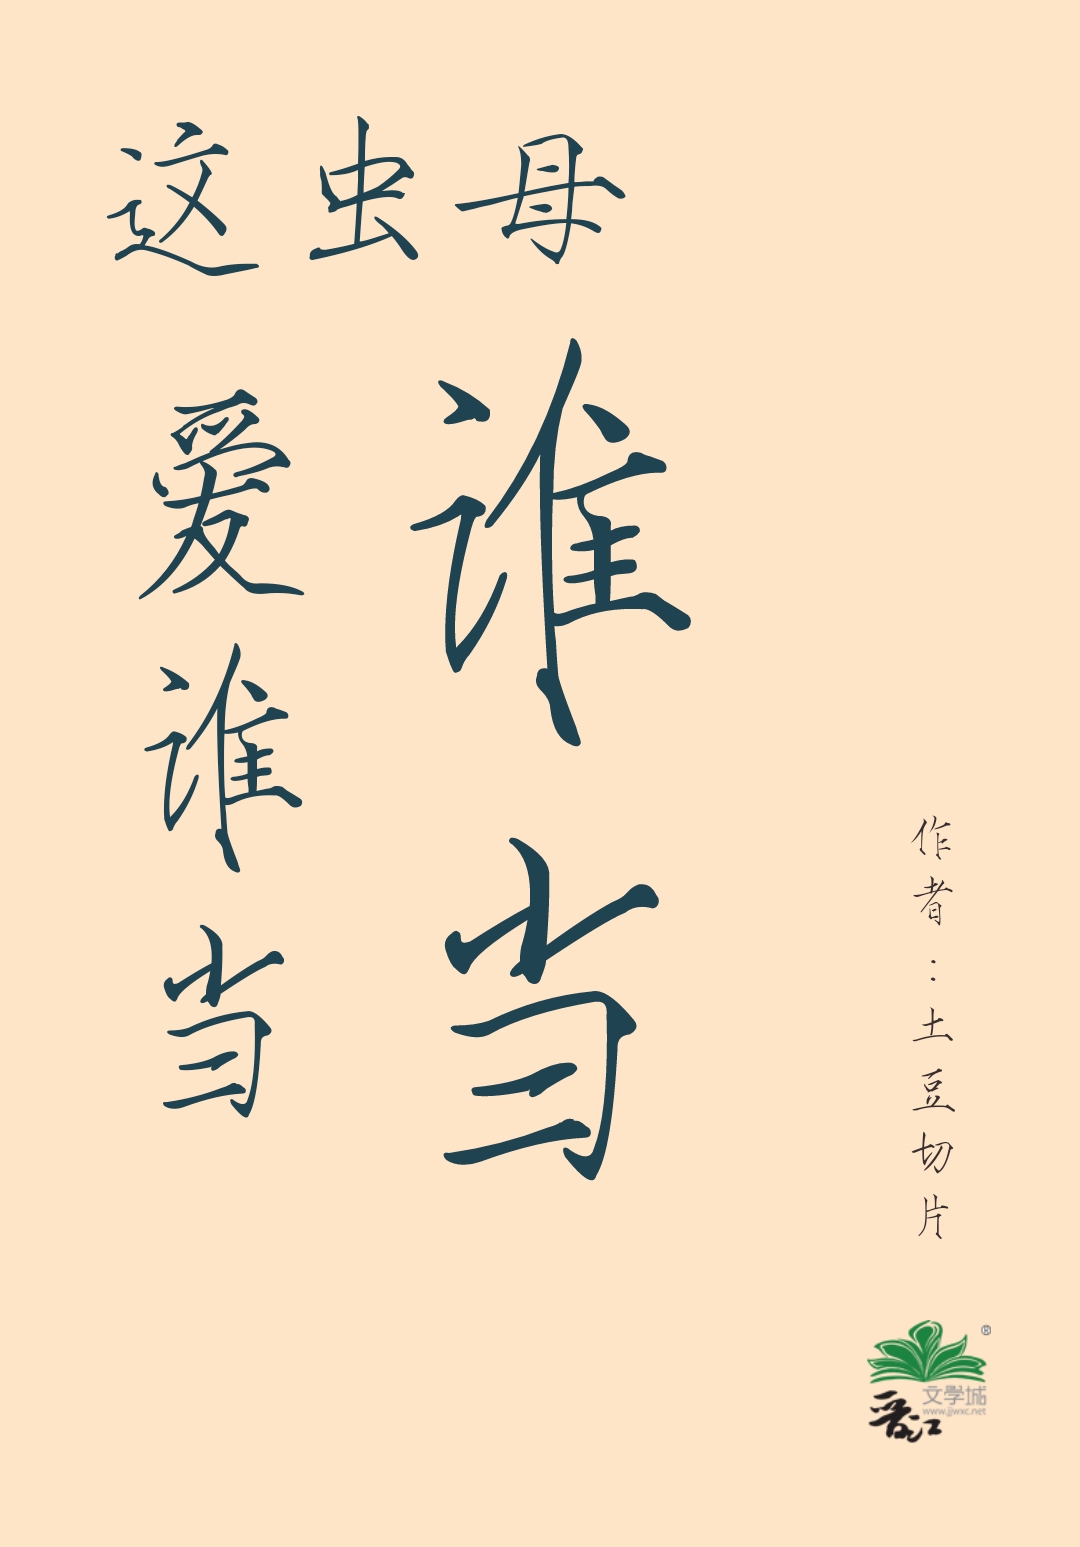 这虫母
爱谁当
谁当
作者：土豆切片
晋江
文學城
www.jjwxc.net
®